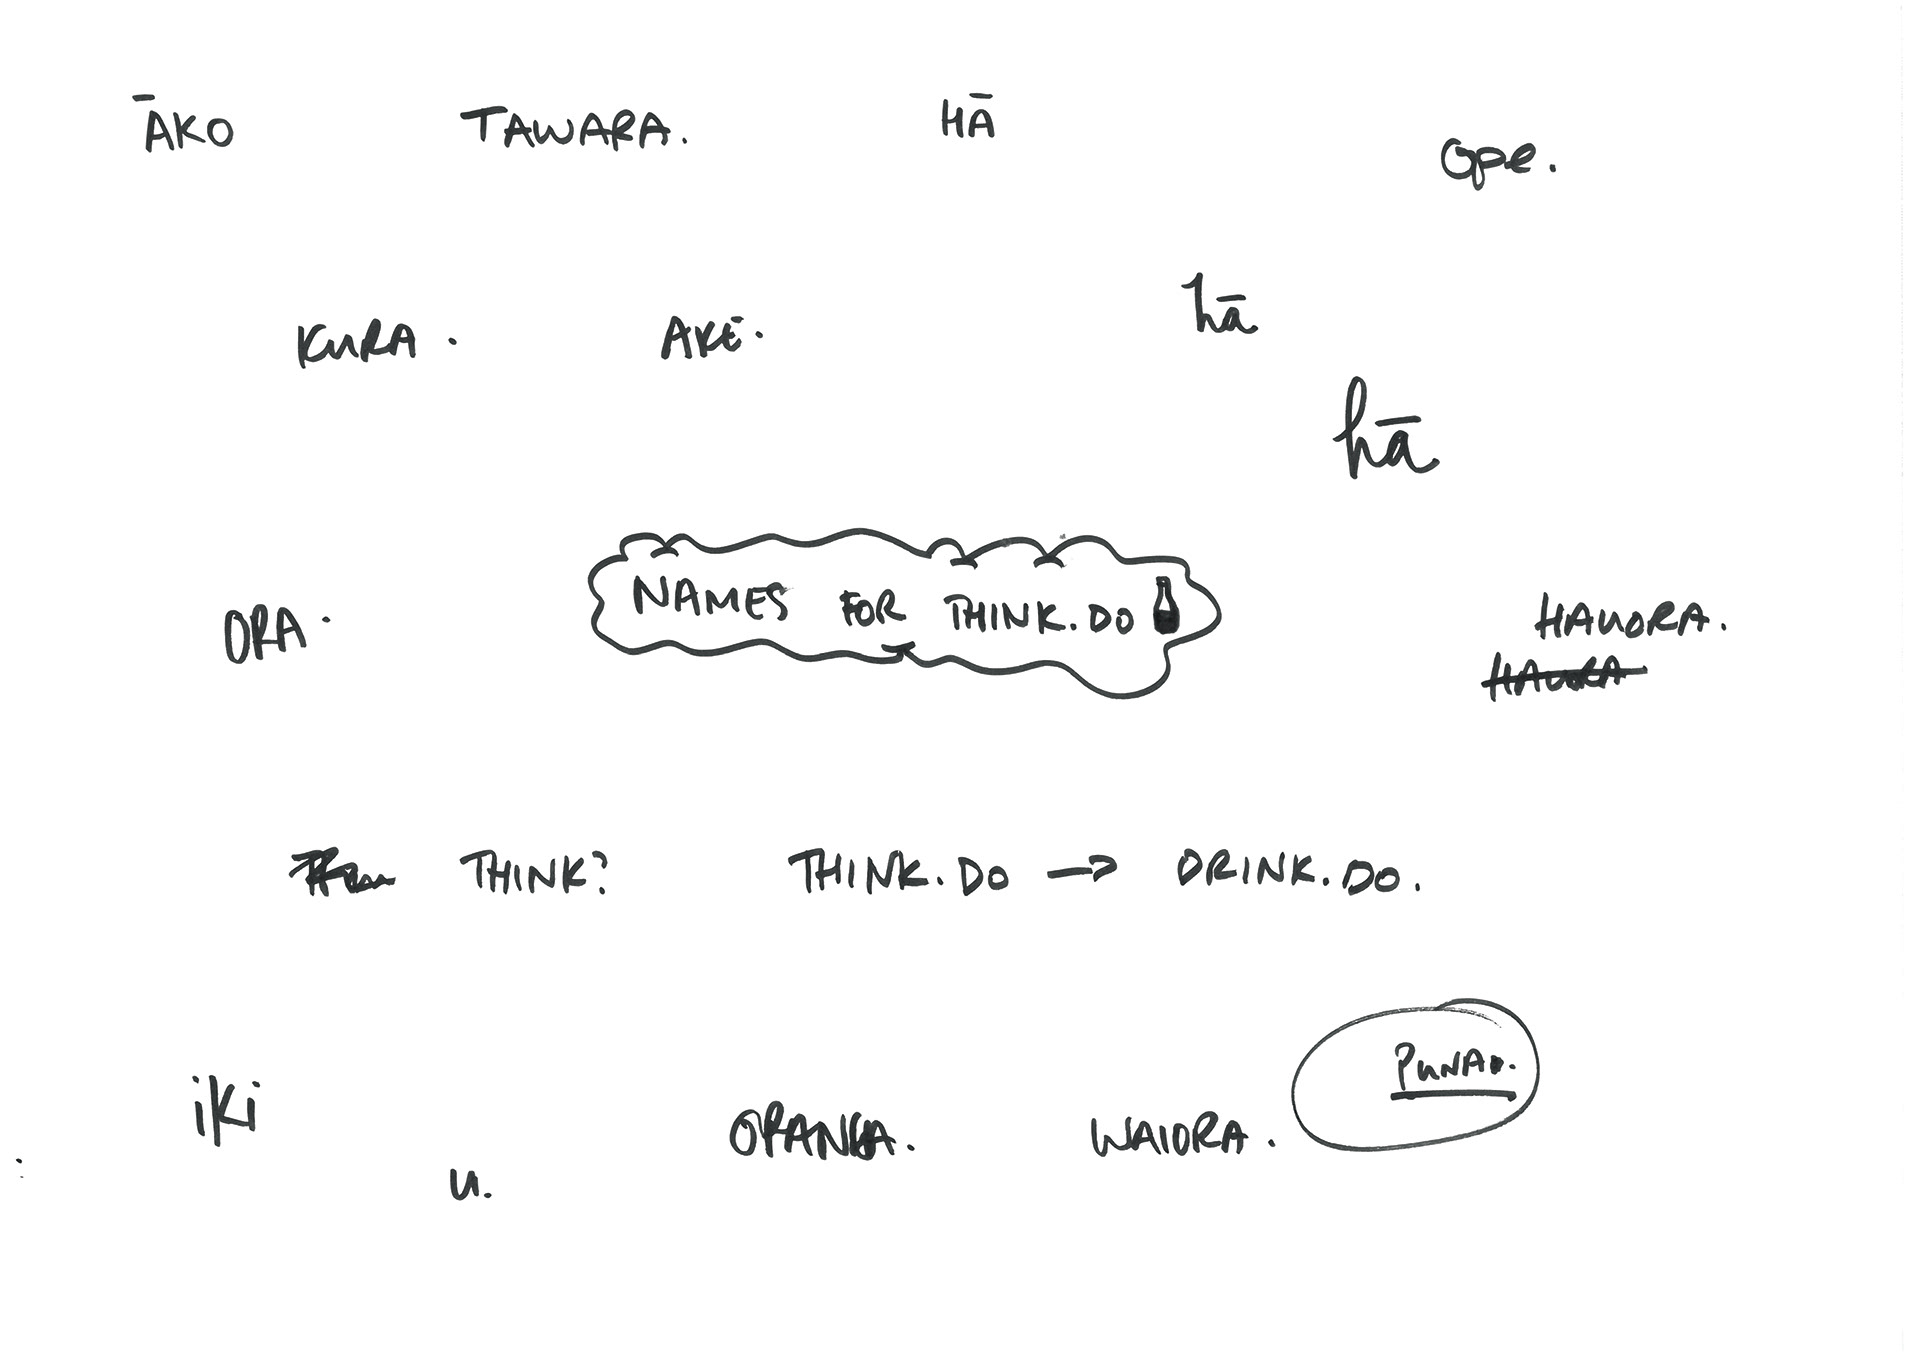 ĀKO TAWARA. HĀ
Ope.
hā
KURA. AKE.
hā
NAMES FOR THINK.DO
ORA.
HAUORA.
HAUORA
THINK? THINK.DO → DRINK.DO.
PUNA.
iki
ORANGA. WAIORA.
u.